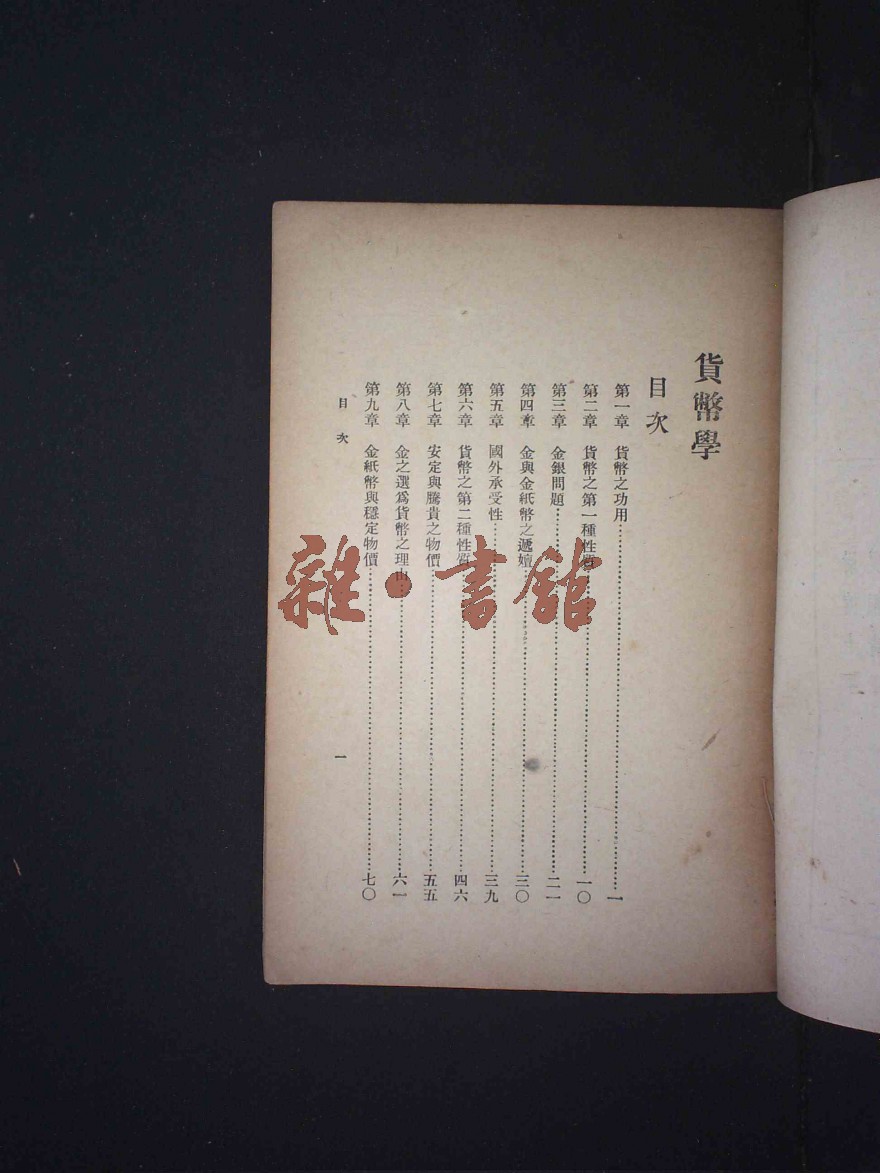 貨幣學
目次
第一章 貨幣之功用……一
第二章 貨幣之第一種性質……一〇
第三章 金銀問題……二一
第四章 金與金紙幣之遞嬗……三〇
第五章 國外承受性……三九
第六章 貨幣之第二種性質……四六
第七章 安定與騰貴之物價……五五
第八章 金之選爲貨幣之理由……六一
第九章 金紙幣與穩定物價……七〇
目次 一
雜·書館